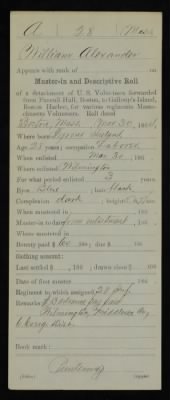 A 28 Mass.
William Alexander
Appears with rank of
Muster-in and Descriptive Roll
of a detachment of U. S. Volunteers forwarded
from Paroll Hall, Boston, to Gallop's Island,
Boston Harbor, for various regiments Massachusetts
Volunteers. Roll dated
Boston, Mass. Mar 30, 1864.
Where born Ireland
Age 28 years; occupation Laborer
When enlisted Mar 30, 186
Where enlisted Wilmington
For what period enlisted 3 years.
Eyes Blue; hair black
Complexion dark; height
When mustered in , 186 .
Muster-in to date from enlistment, 186 .
Where mustered in
Bounty paid $ 60 100; due $ 100
Nothing assumed:
Last settled , 186 ; drawn since $ 100
Date of first muster , 186 .
Regiment to which assigned 28 Inf.
Remarks:
Wilmington, Middlesex
Book mark: